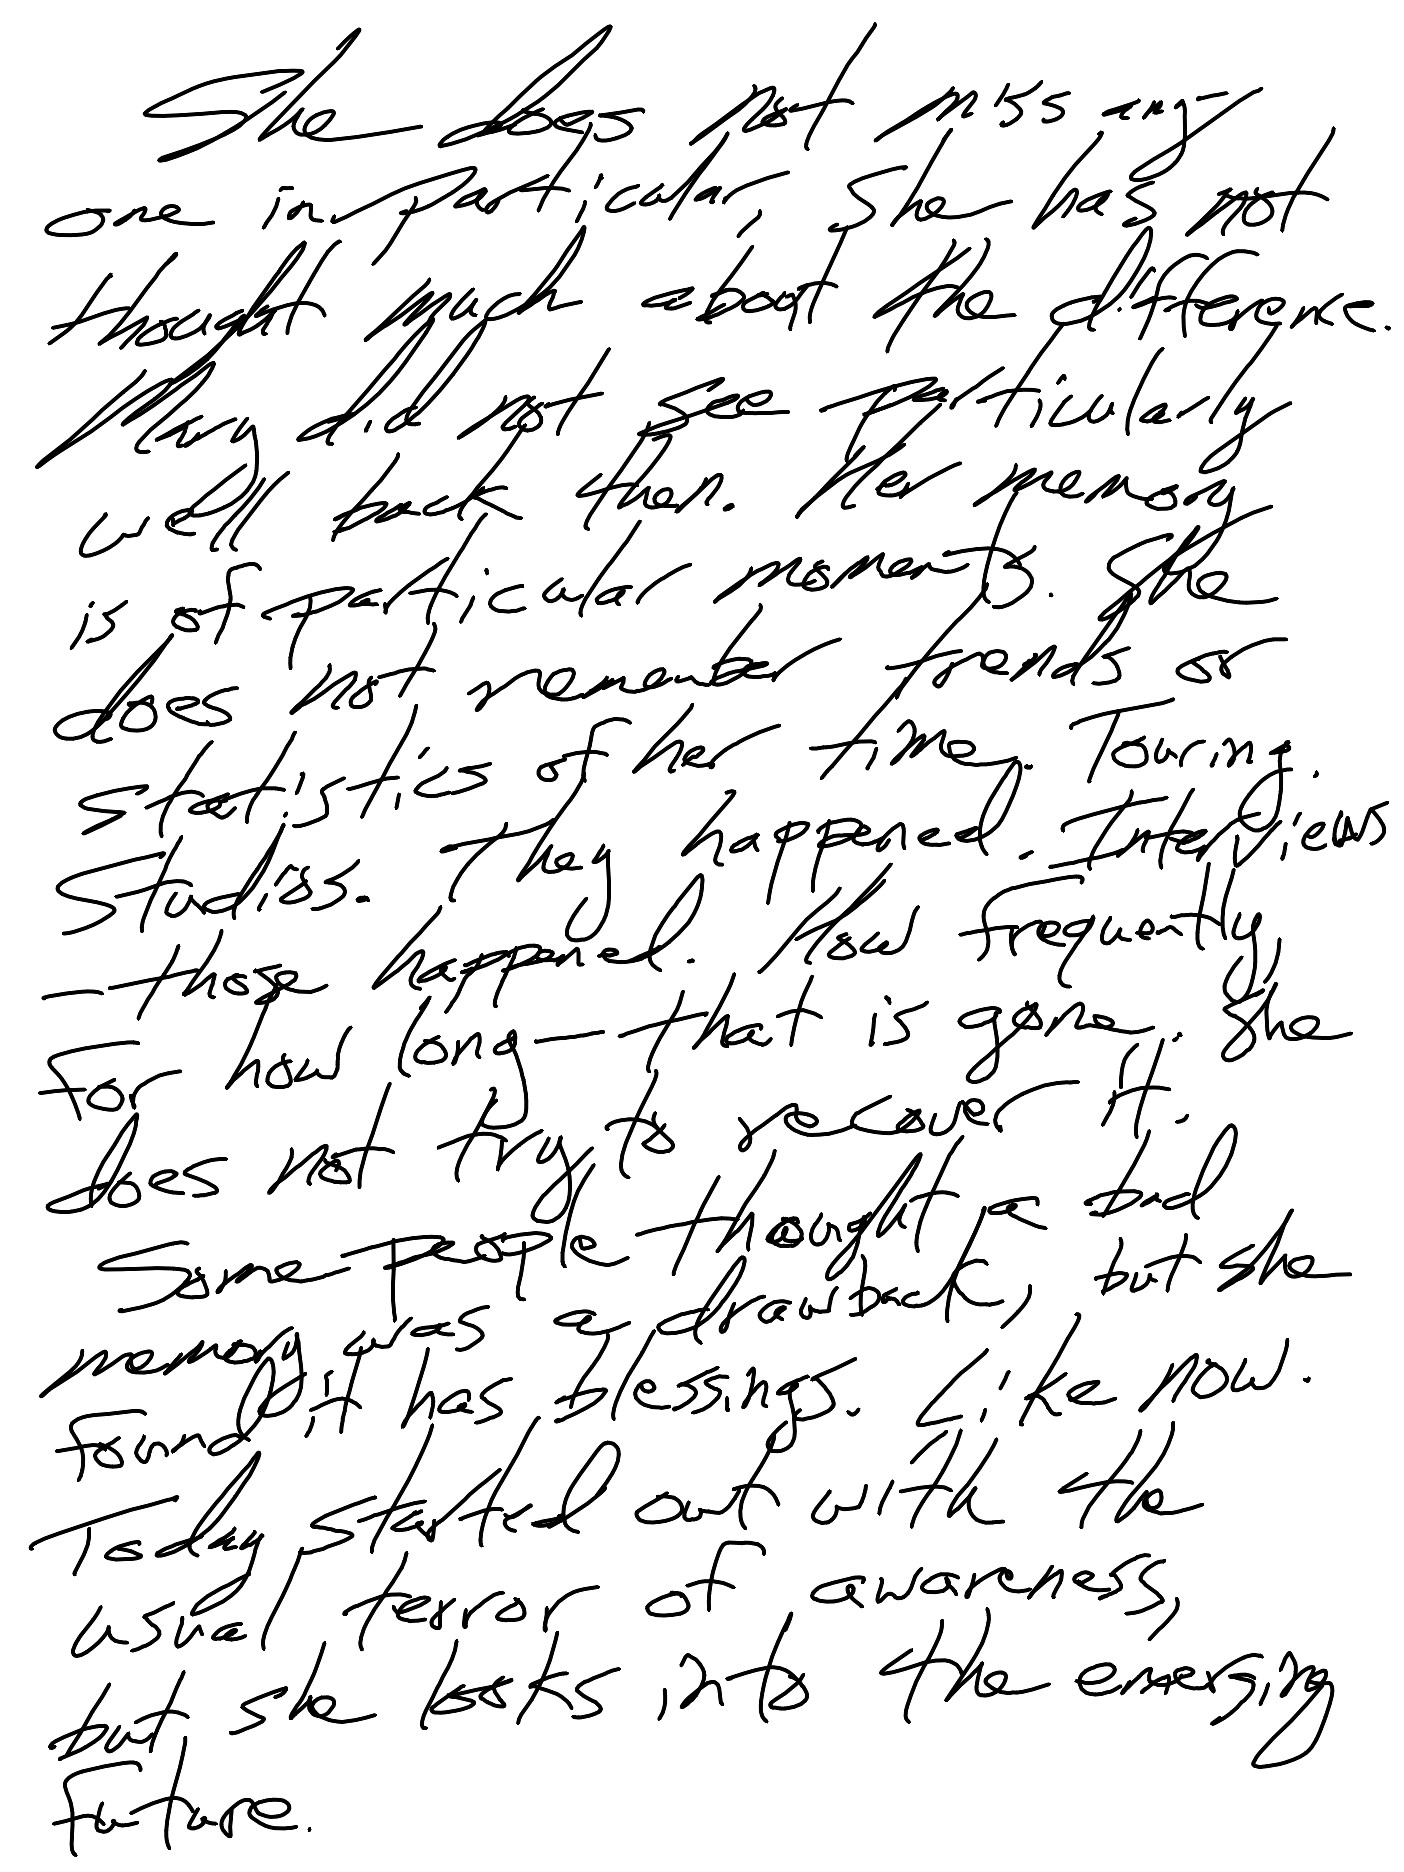 She does not miss any-
one in particular, she has not
thought much about the difference.
Mary did not see particularly
well back then. Her memory
is of particular moments. She
does not remember trends or
statistics of her time. Touring.
Studios. They happened. Interviews
—those happened. How frequently,
for how long—that is gone. She
does not try to recover it.
Some people thought a bad
memory was a drawback, but she
found it has blessings. Like now.
Today started out with the
usual terror of awareness,
but she looks into the emerging
future.